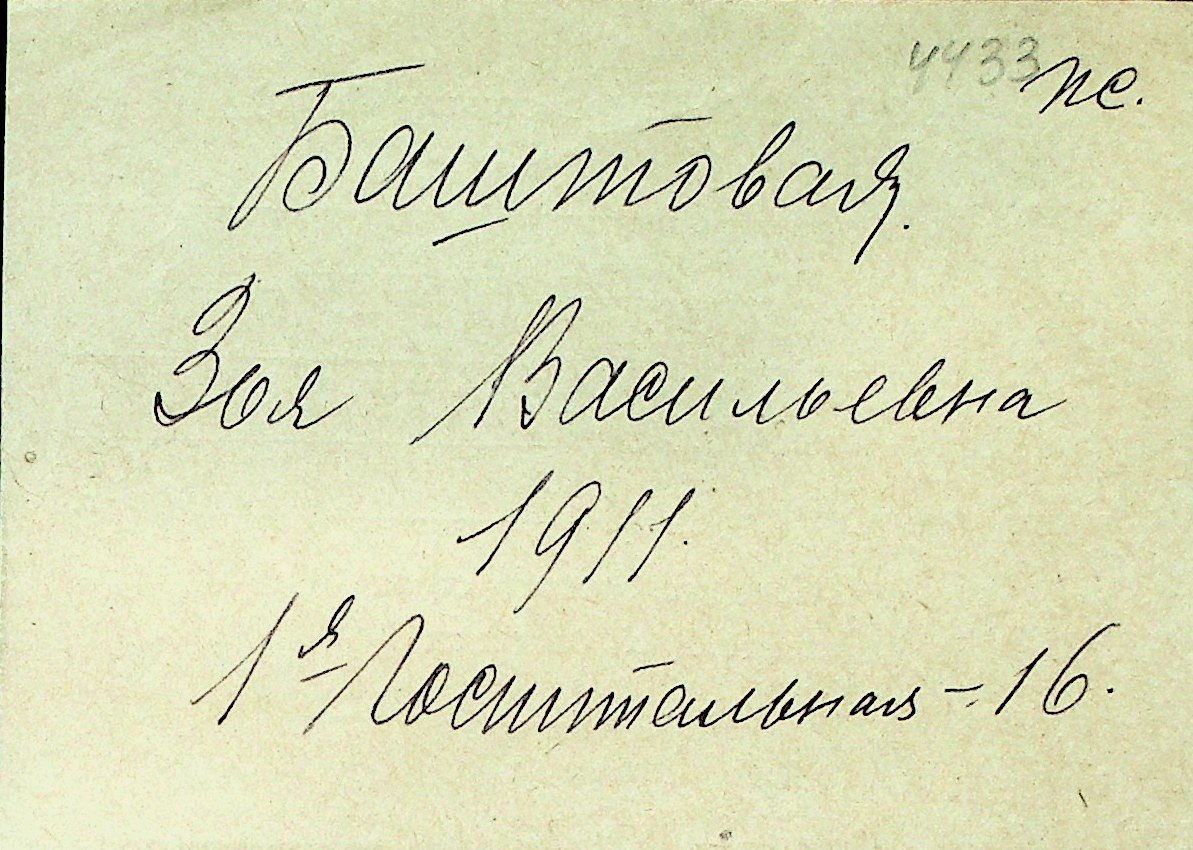 4433 пс.
Баштовая.
Зоя Васильевна
1911.
1я Госпитальная - 16.